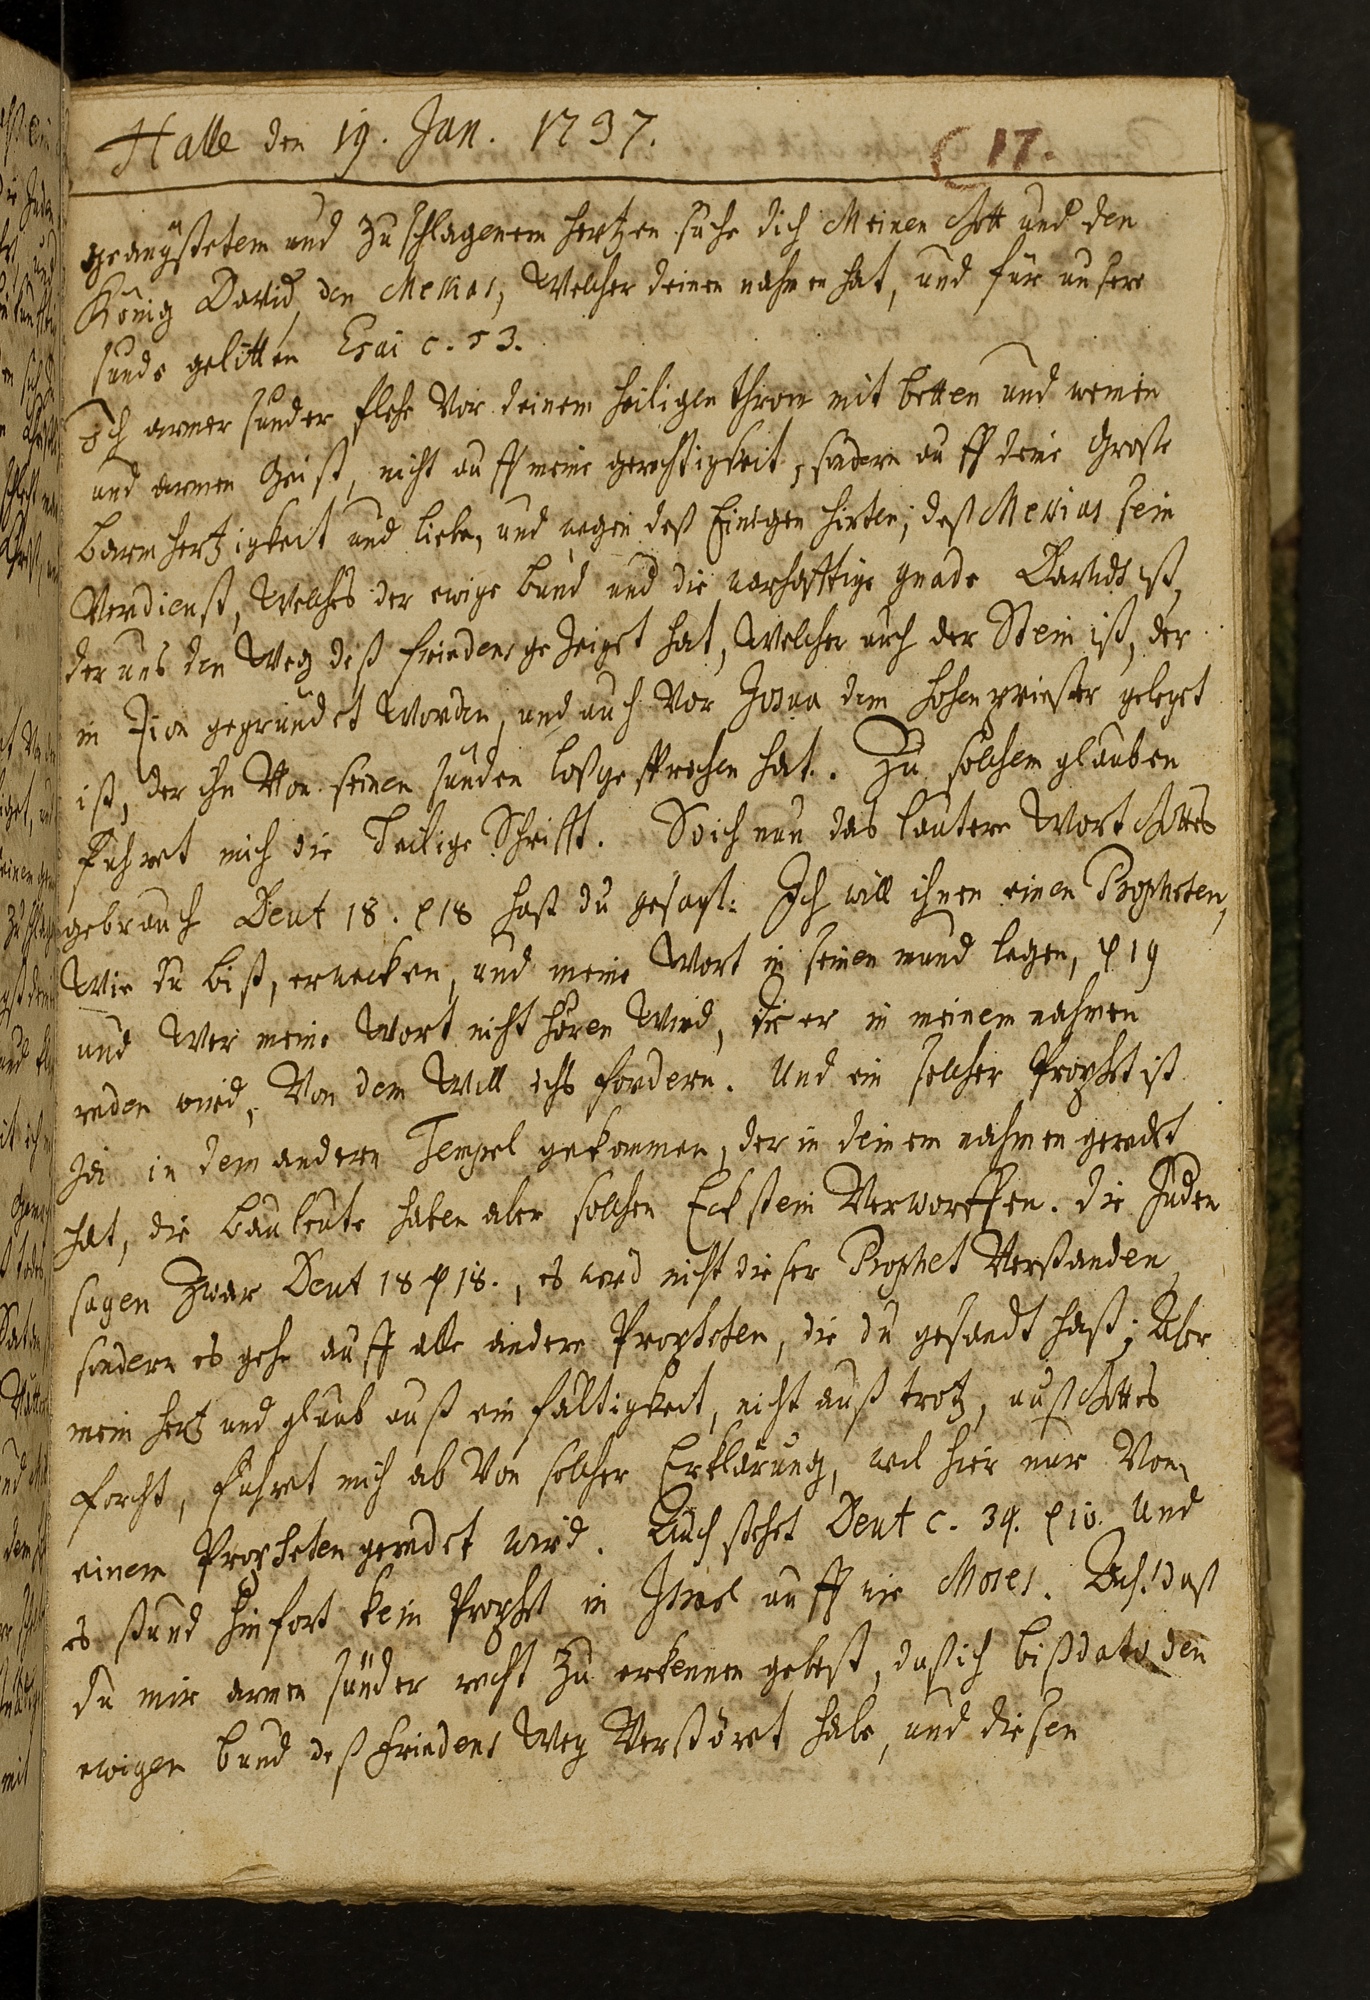 Halle den 19. Jan. 1737. (17.
geängstetem und zuschlagenem hertzen suche dich Meinen Gott und den
König David, den Messias, Welcher deinen nahmen hat, und für unsere
sünde gelitten Esai c. 53.
Ich armer sünder flehe Vor deinem heiligen thron mit betten und weinen
und armen Geist, nicht auff meine gerechtigkeit, sondern auff deine Große
barmhertzigkeit und liebe, und wegen deß Einigen hirten, deß Messias sein
Verdienst, Welches der ewige bund und die warhafftige gnade Davids ist,
der uns den Weg deß friedens gezeiget hat, Welcher auch der Stein ist, der
in Zion gegründet Worden, und auch Vor Josua dem hohenpriester geleget
ist, der ihn Von seinen sünden loßgesprochen hat. Zu solchem glauben
führet mich die heilige Schrifft. So ich nun das lautere Wort Gottes
gebrauch Deut 18. v 18 hast du gesagt: Ich will ihnen einen Propheten,
Wie du bist, erwecken, und meine Wort in seinen mund legen, v. 19
und Wer meine Wort nicht hören Wird, die er in meinem nahmen
reden wird, Von dem Will ichs fordern. Und ein solcher Prophet ist
ja in dem andern Tempel gekommen, der in deinem nahmen geredet
hat, die bauleute haben aber solchen Eckstein Verworffen. die Juden
sagen Zwar Deut 18 v 18., es werd nicht dieser Prophet Verstanden,
sondern es gehe auff alle andere Propheten, die du gesandt hast; Aber
mein hertz und glaub auß einfältigkeit, nicht auß trotz, auß Gottes
forcht, führet mich ab Von solcher Erklärung, weil hier nur Von
einem Propheten geredet wird. Auch stehet Deut c. 34. v 10. Und
es stund hinfort kein Prophet in Israel auff wie Moses. Ach! daß
du mir armen sünder recht zu erkennen gebest, daß ich bißdato den
ewigen bund deß friedens Weg Verstöret habe, und diesen